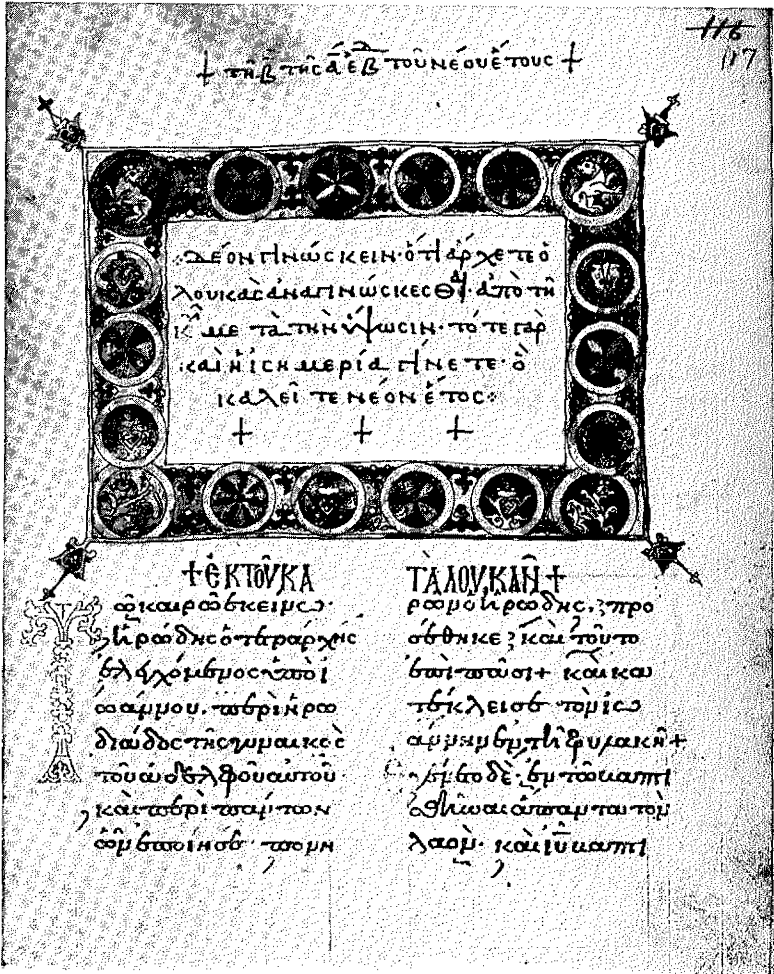 116
117
+ τῆ β τῆς ᾱ ἐβ τοῦ νέου ἔτους +
Δέον γινώσκειν· ὅτι ἄρχετε ὁ
λουκᾶς ἀναγινώσκεσθαι· ἀπὸ τὴ
με τὰ τὴν ὕψωσιν· τό τε γὰρ
καὶ ἡ ἰσημερία γίνετε· ὃ
καλεῖ τε νέον ἔτος:·
+ + +
+ ἐκ τοῦ κα
Τῶ καιρῶ ἐκείνω·
ἡρώδης ὁ τετράρχης
ἐλεγχόμενος ὑπὸ ἰ
ωάννου. περὶ ἡρω
διάδος τῆς γυναικὸς
τοῦ ἀδελφοῦ αὐτοῦ·
καὶ περὶ πάντων
ὧν ἐποίησε πονη
τὰ λουκᾶν +
ρῶν ὁ ἡρώδης, προ
σέθηκε, καὶ τοῦτο
ἐπὶ πᾶσι+ καὶ κα
τέκλεισε τὸν ἰω
άννην ἐν τῆ φυλακῆ+
ἐγένετο δὲ ἐν τῶ βαπτι
σθῆναι ἅπαντα τὸν
λαὸν· καὶ ἰῦ βαπτι